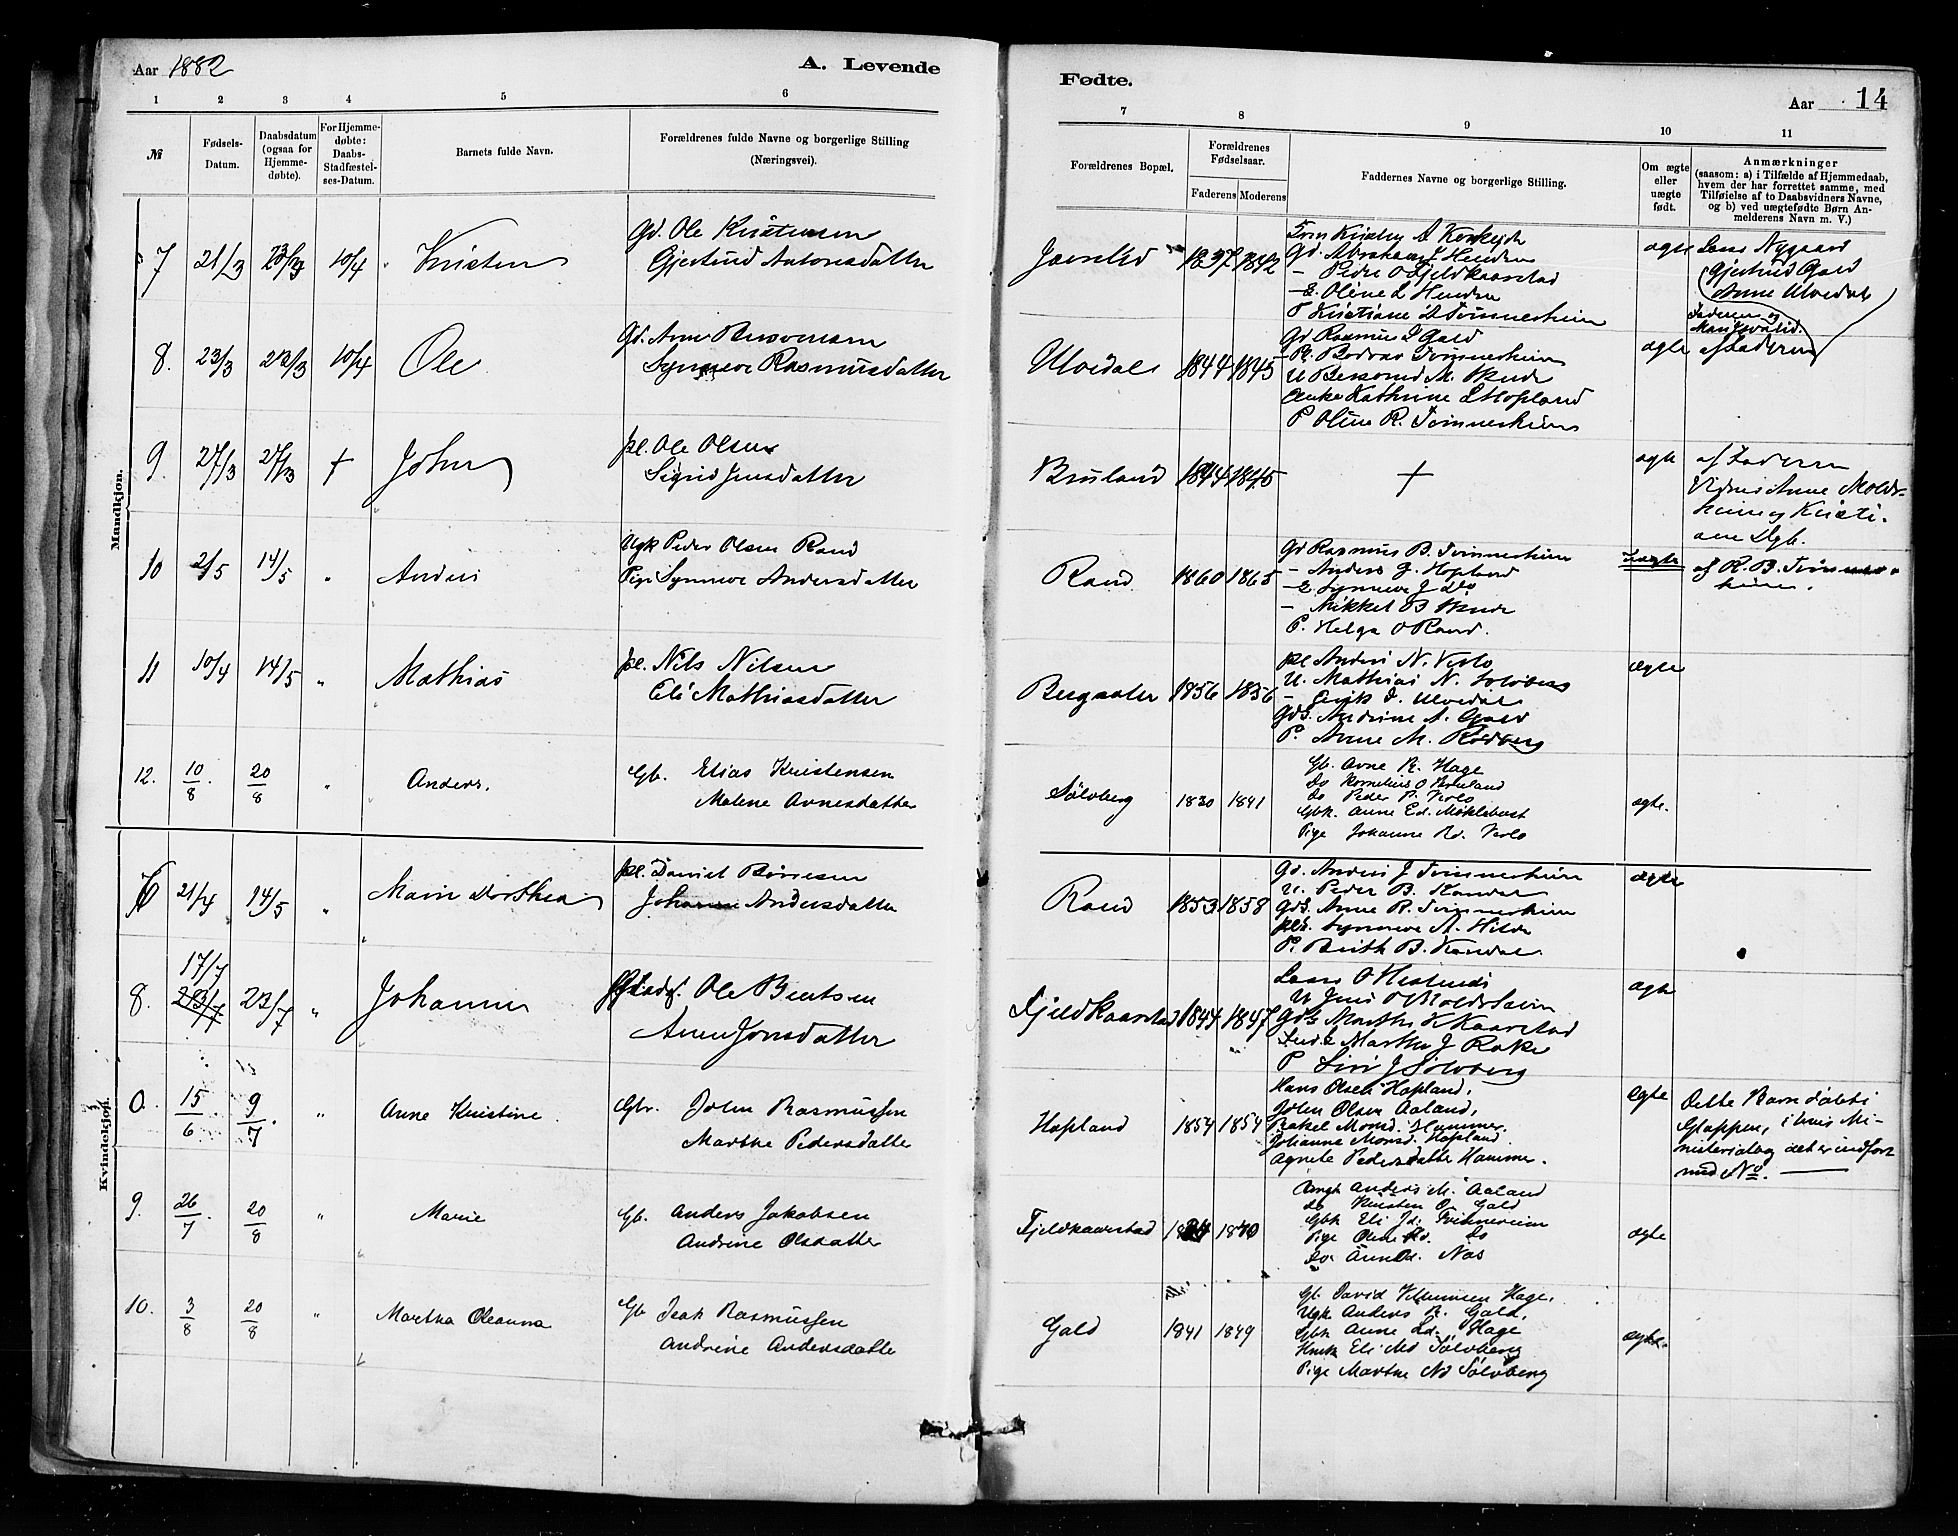 Aar 1882
A. Levende
Fødte.
Aar 14
1 2 3 4 5 6
7 8 9 10 11
№
Fødsels-
Datum.
Daabsdatum
(ogsaa for
Hjemme-
døbte).
For Hjemme-
døbte:
Daabs-
Stadfæstel-
ses-Datum.
Barnets fulde Navn.
Forældrenes fulde Navne og borgerlige Stilling
(Næringsvei).
Forældrenes Bopæl.
Forældrenes
Fødselsaar.
Faderens Moderens
Faddernes Navne og borgerlige Stilling.
Om ægte
eller
uægte
født.
Anmærkninger
(saasom: a) i Tilfælde af Hjemmedaab,
hvem der har forrettet samme, med
Tilføielse af to Daabsvidners Navne,
og b) ved uægtefødte Børn An-
melderens Navn m. V.)
Mandkjøn.
7 21/3 23/3 10/4 Kristen
Gd. Ole Kristensen
Gjertrud Antonsdatter
1837 1842
Gd. Abraham J Henden
- Peder O Fjeldkaarstad
E. Oline L Henden
P Kristiane A Tømmerheim
ægte
Lars Nygaard
Gjertrud Gald
Anne Ulvedal
8. 23/3 23/3 10/4 Ole
Gd. Arne
Synneve Rasmusdatter
Ulvedal 1844 1845
Gd Rasmus L Gald
P Oline R. Tømmerheim
ægte
af Faderen
9. 27/3 27/3 + John
pl. Ole Olsen
Sigrid Jensdatter
Bruland 1844 1845
+
ægte
af Faderen
Vidner Anne Molds-
heim og Kristi-
ane Dgb.
10 2/5 14/5 " Anders
Ugk Peder Olsen Rand
Pige Synneve Andersdatter
Rand 1860 1865
Gd Rasmus B. Tømmerheim
- Anders J. Hopland
- E Synneve J Do
- Mikkel B Skude
P. Helga O Rand.
Uægte
af R. B. Tømmer-
heim.
11 10/4 14/5 " Mathias
pl. Nils Nilsen
Eli Mathiasdatter
Bergsater 1856 1856
pl Anders N. Verlo
U. Mathias N. Solvberg
GdE. Andrine A. Gald
P. Anne M. Rødberg
ægte
12. 10/8. 20/8 " Anders.
Gb. Elias Kristensen
Malene Arnesdatter
Sølvberg 1830 1841
Gb. Arne R. Hage
do Kornelius O Bruland
do Peder P. Verlo
Gbk. Anne Ed. Myklebust
Pige Johanne Rd. Verlo
ægte.
Kvindekjøn.
7 21/4 14/5 " Maria Dorthea
pl. Daniel Børresen
Johanne Andersdatter
Rand 1853 1858
Gd. Anders J Tømmerheim
U. Peder B. Kandal
GdE. Anne R. Tømmerheim
plE. Synneve A. Hilde
P. Berith B. Kandal.
ægte
8. 17/7 23/7 23/7 " Johanne
Ole Bentsen
Anne Jonsdatter
Fjeldkaarstad 1844 1847
U Jens O Moldsheim
GdE Marthe K Kaarstad
Marthe J Rake
P Siri J Sølvberg
ægte
0. 15/6 9/7. " Anne Kristine.
Gbr. John Rasmussen
Marthe Pedersdatter
Hopland 1854 1854
Hans Olsen Hopland.
John Olsen Aaland,
Rakel Monsd. Hammer.
Johanne Monsd. Hopland.
Agnete Pedersdatter Hammer.
ægte
Dette Barn døbt i
Gloppen, i hvis Mi-
nisterialbog det er indført
med No.
9. 26/7. 20/8 " Marie
Gb. Anders Jakobsen
Andrine Olsdatter
Fjeldkaarstad 1840
Ungk Anders M. Aaland
do Kristen O. Gald
Gbk Eli Jd. Tømmerheim
Pige Oline Rd. do
do Nos
ægte
10. 3/8 20/8 " Martha Oleanna
Gb Isak Rasmussen
Andrine Andersdatter
Gald 1841 1849
Gb. David Villumsen Hage.
Ugk Anders R. Gald.
Gbk Anne Ld. Hage
Eli Md Sølvberg
Pige Marthe Nd Sølvberg
ægte.